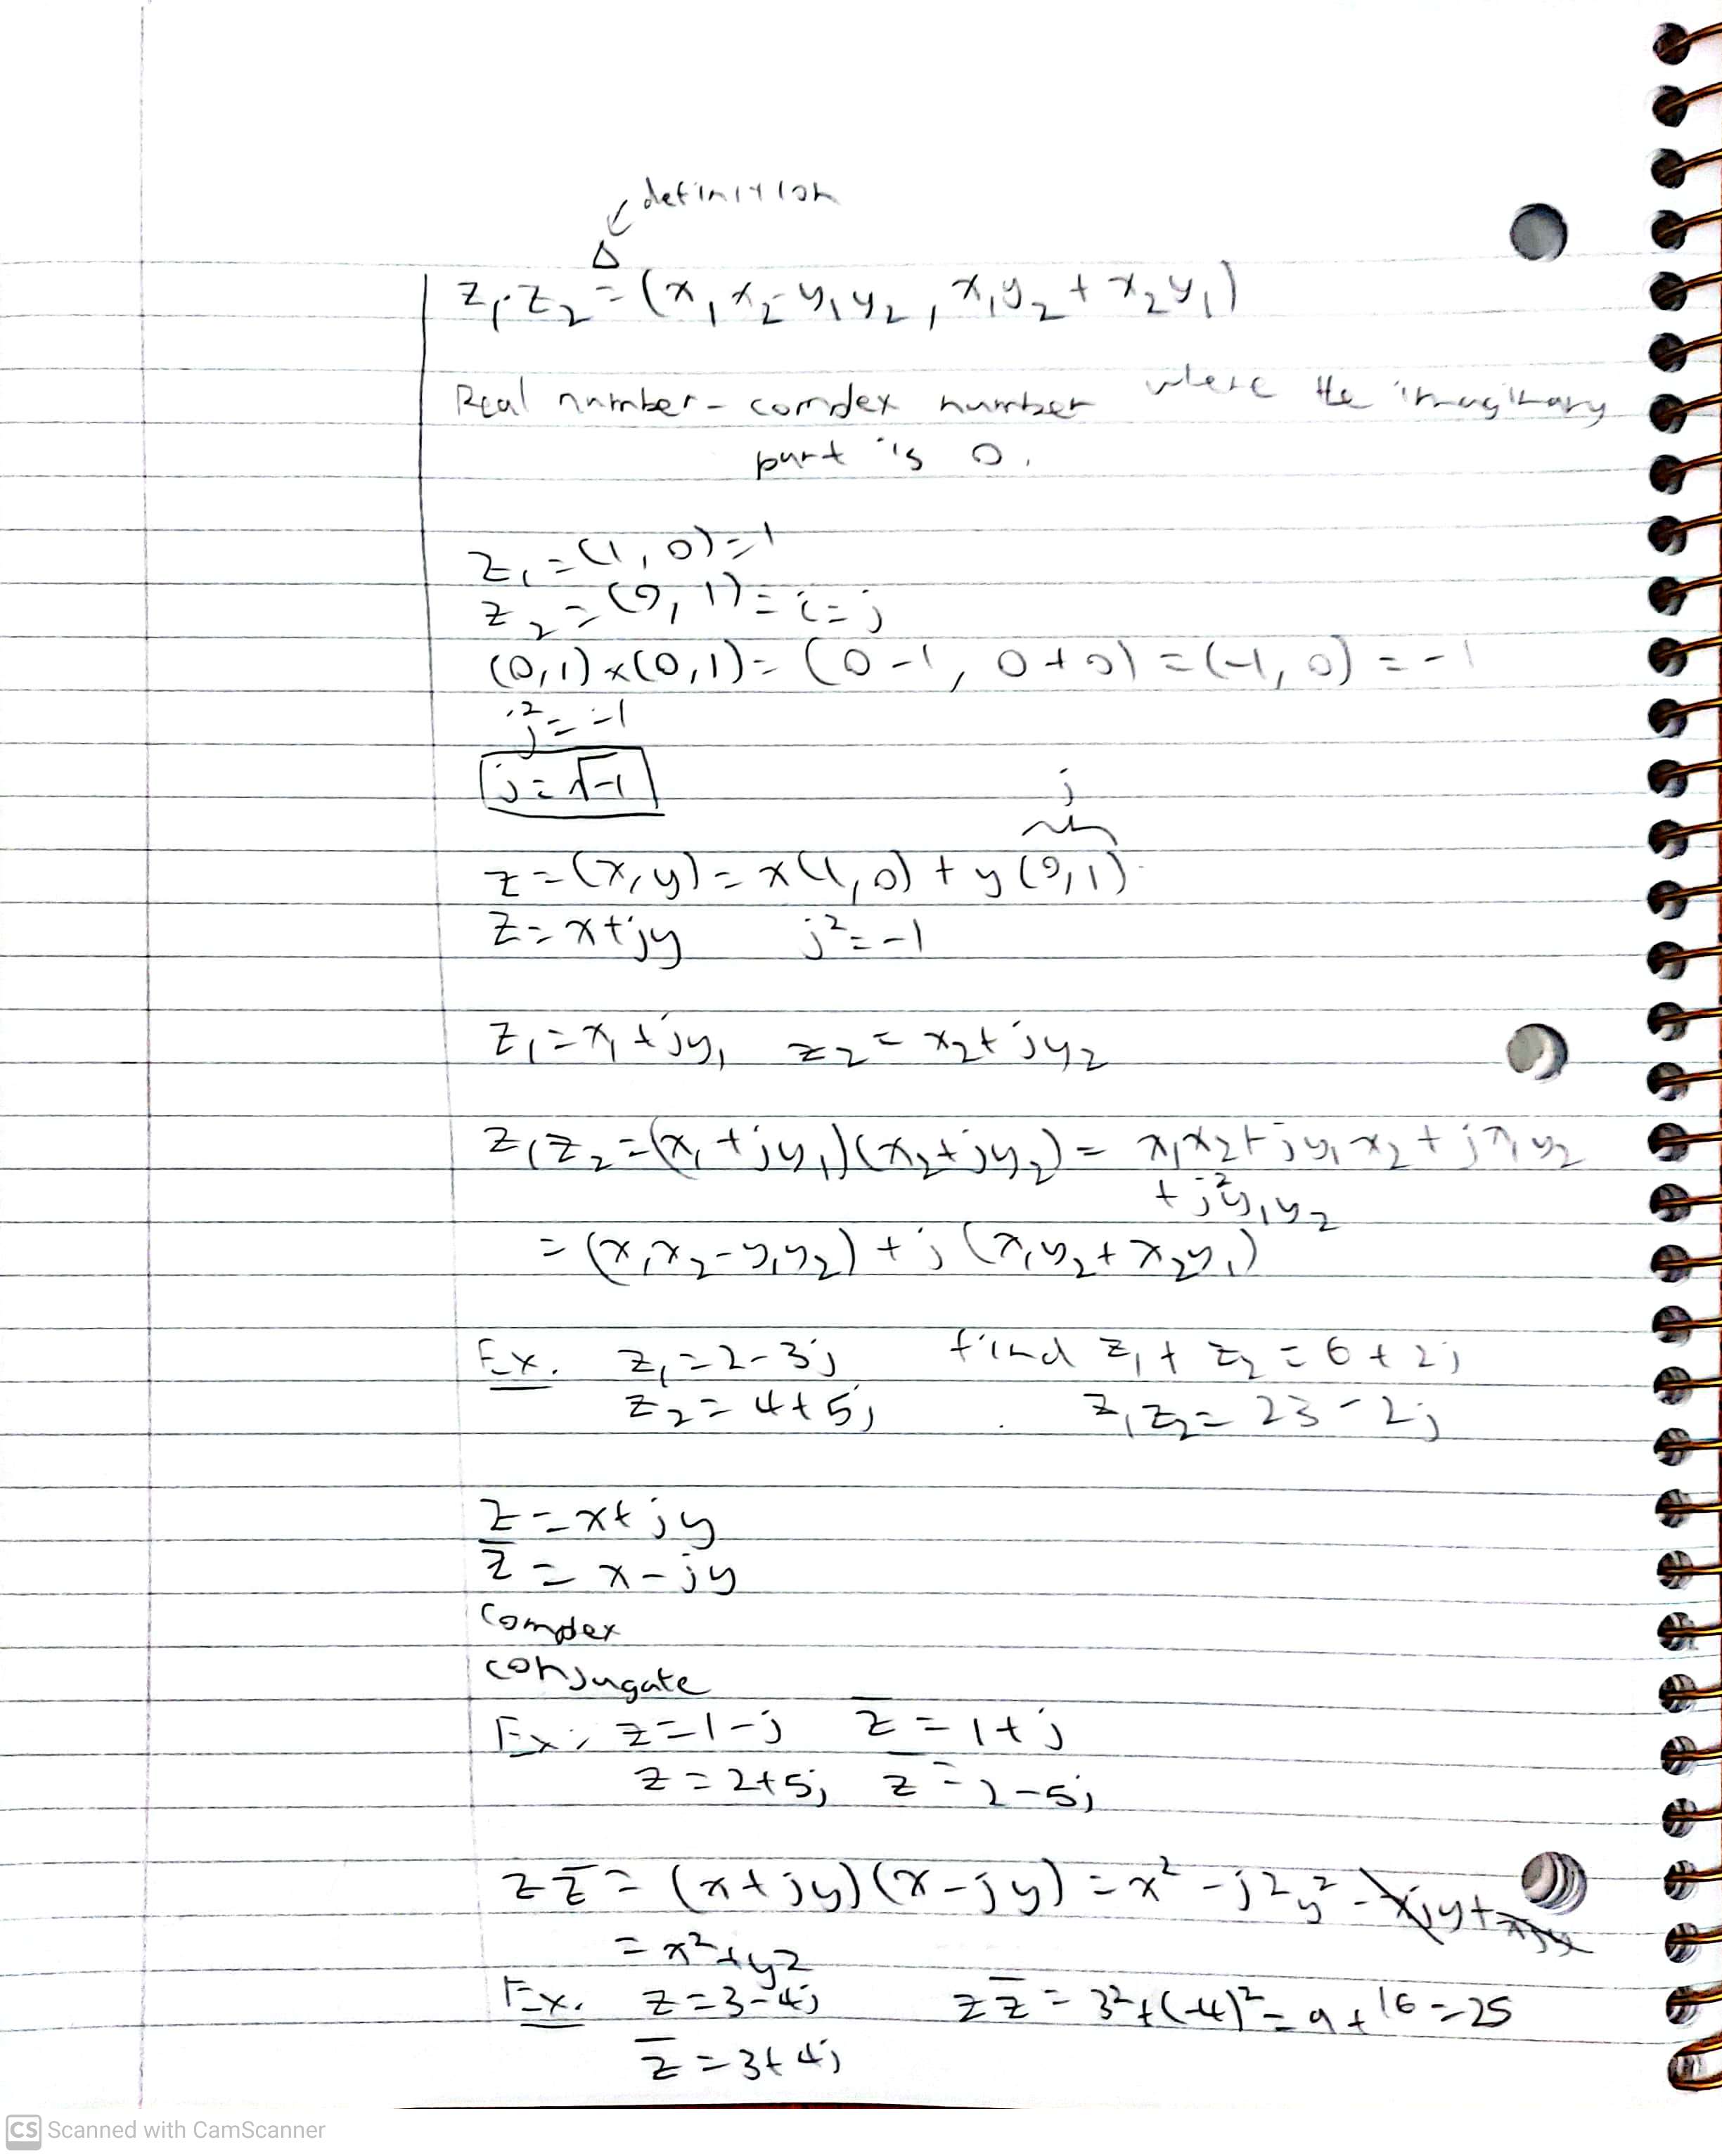 definition
Δ
z₁·z₂ = (x₁x₂-y₁y₂, x₁y₂ + x₂y₁)
Real number - complex number where the imaginary
part is 0.
z₁ = (1, 0) = 1
z₂ = (0, 1) = i = j
(0,1) x (0,1) = (0-1, 0+0) = (-1, 0) = -1
j² = -1
j = √-1
j
z = (x, y) = x(1, 0) + y(0, 1)
z = x+jy j² = -1
z₁ = x₁ + jy₁ z₂ = x₂ + jy₂
z₁z₂ = (x₁ + jy₁)(x₂ + jy₂) = x₁x₂ + jy₁x₂ + jx₁y₂
+ j²y₁y₂
= (x₁x₂ - y₁y₂) + j(x₁y₂ + x₂y₁)
Ex. z₁ = 2-3j find z₁ + z₂ = 6 + 2j
z₂ = 4+5j z₁z₂ = 23 - 2j
z = x+jy
z̅ = x-jy
Complex
conjugate
Ex: z = 1-j z̅ = 1+j
z = 2+5j z̅ = 2-5j
zz̅ = (x+jy)(x-jy) = x² - j²y² - xjy + xjy
= x²+y²
Ex. z = 3-4j zz̅ = 3²+(-4)² = 9+16 = 25
z̅ = 3+4j
CS Scanned with CamScanner